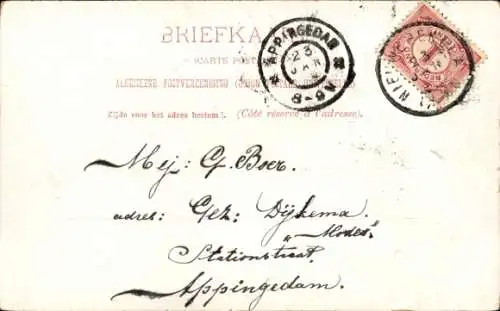 BRIEFKA
(CARTE POST
ALGEMEENE POSTVEREENIGING (UNION
Zijde voor het adres bestemd. (Côté réservé à l'adresse).
APPINGEDAM
23
JAN
8-9V
NIEUWE PEKELA
Mej: G. Boer.
adres: Gez: Dijkema.
„Modes"
Stationstraat.
Appingedam.